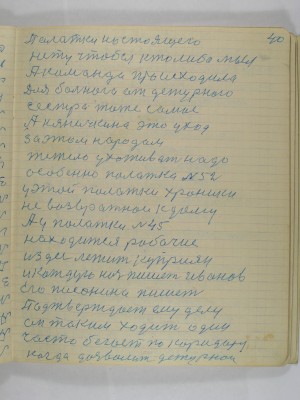 40
Палатки настоящего
нету чтобы ктолибо мыл
А команда происходила
для больного от дежурного
сестра тоже самое
А нянички на это уход
за этом народом
тяжело ухоживат надо
особенно палатка №52
у этой палатки хроники
не возвратной к дому
А у палатки №45
находится рабочие
издес лежит Куприян
и каждую ноч пишет иванов
его писонина пишет
Подтверждает ему делу
он таким ходит один
часто бегает по каридару
когда дозволит дежурной